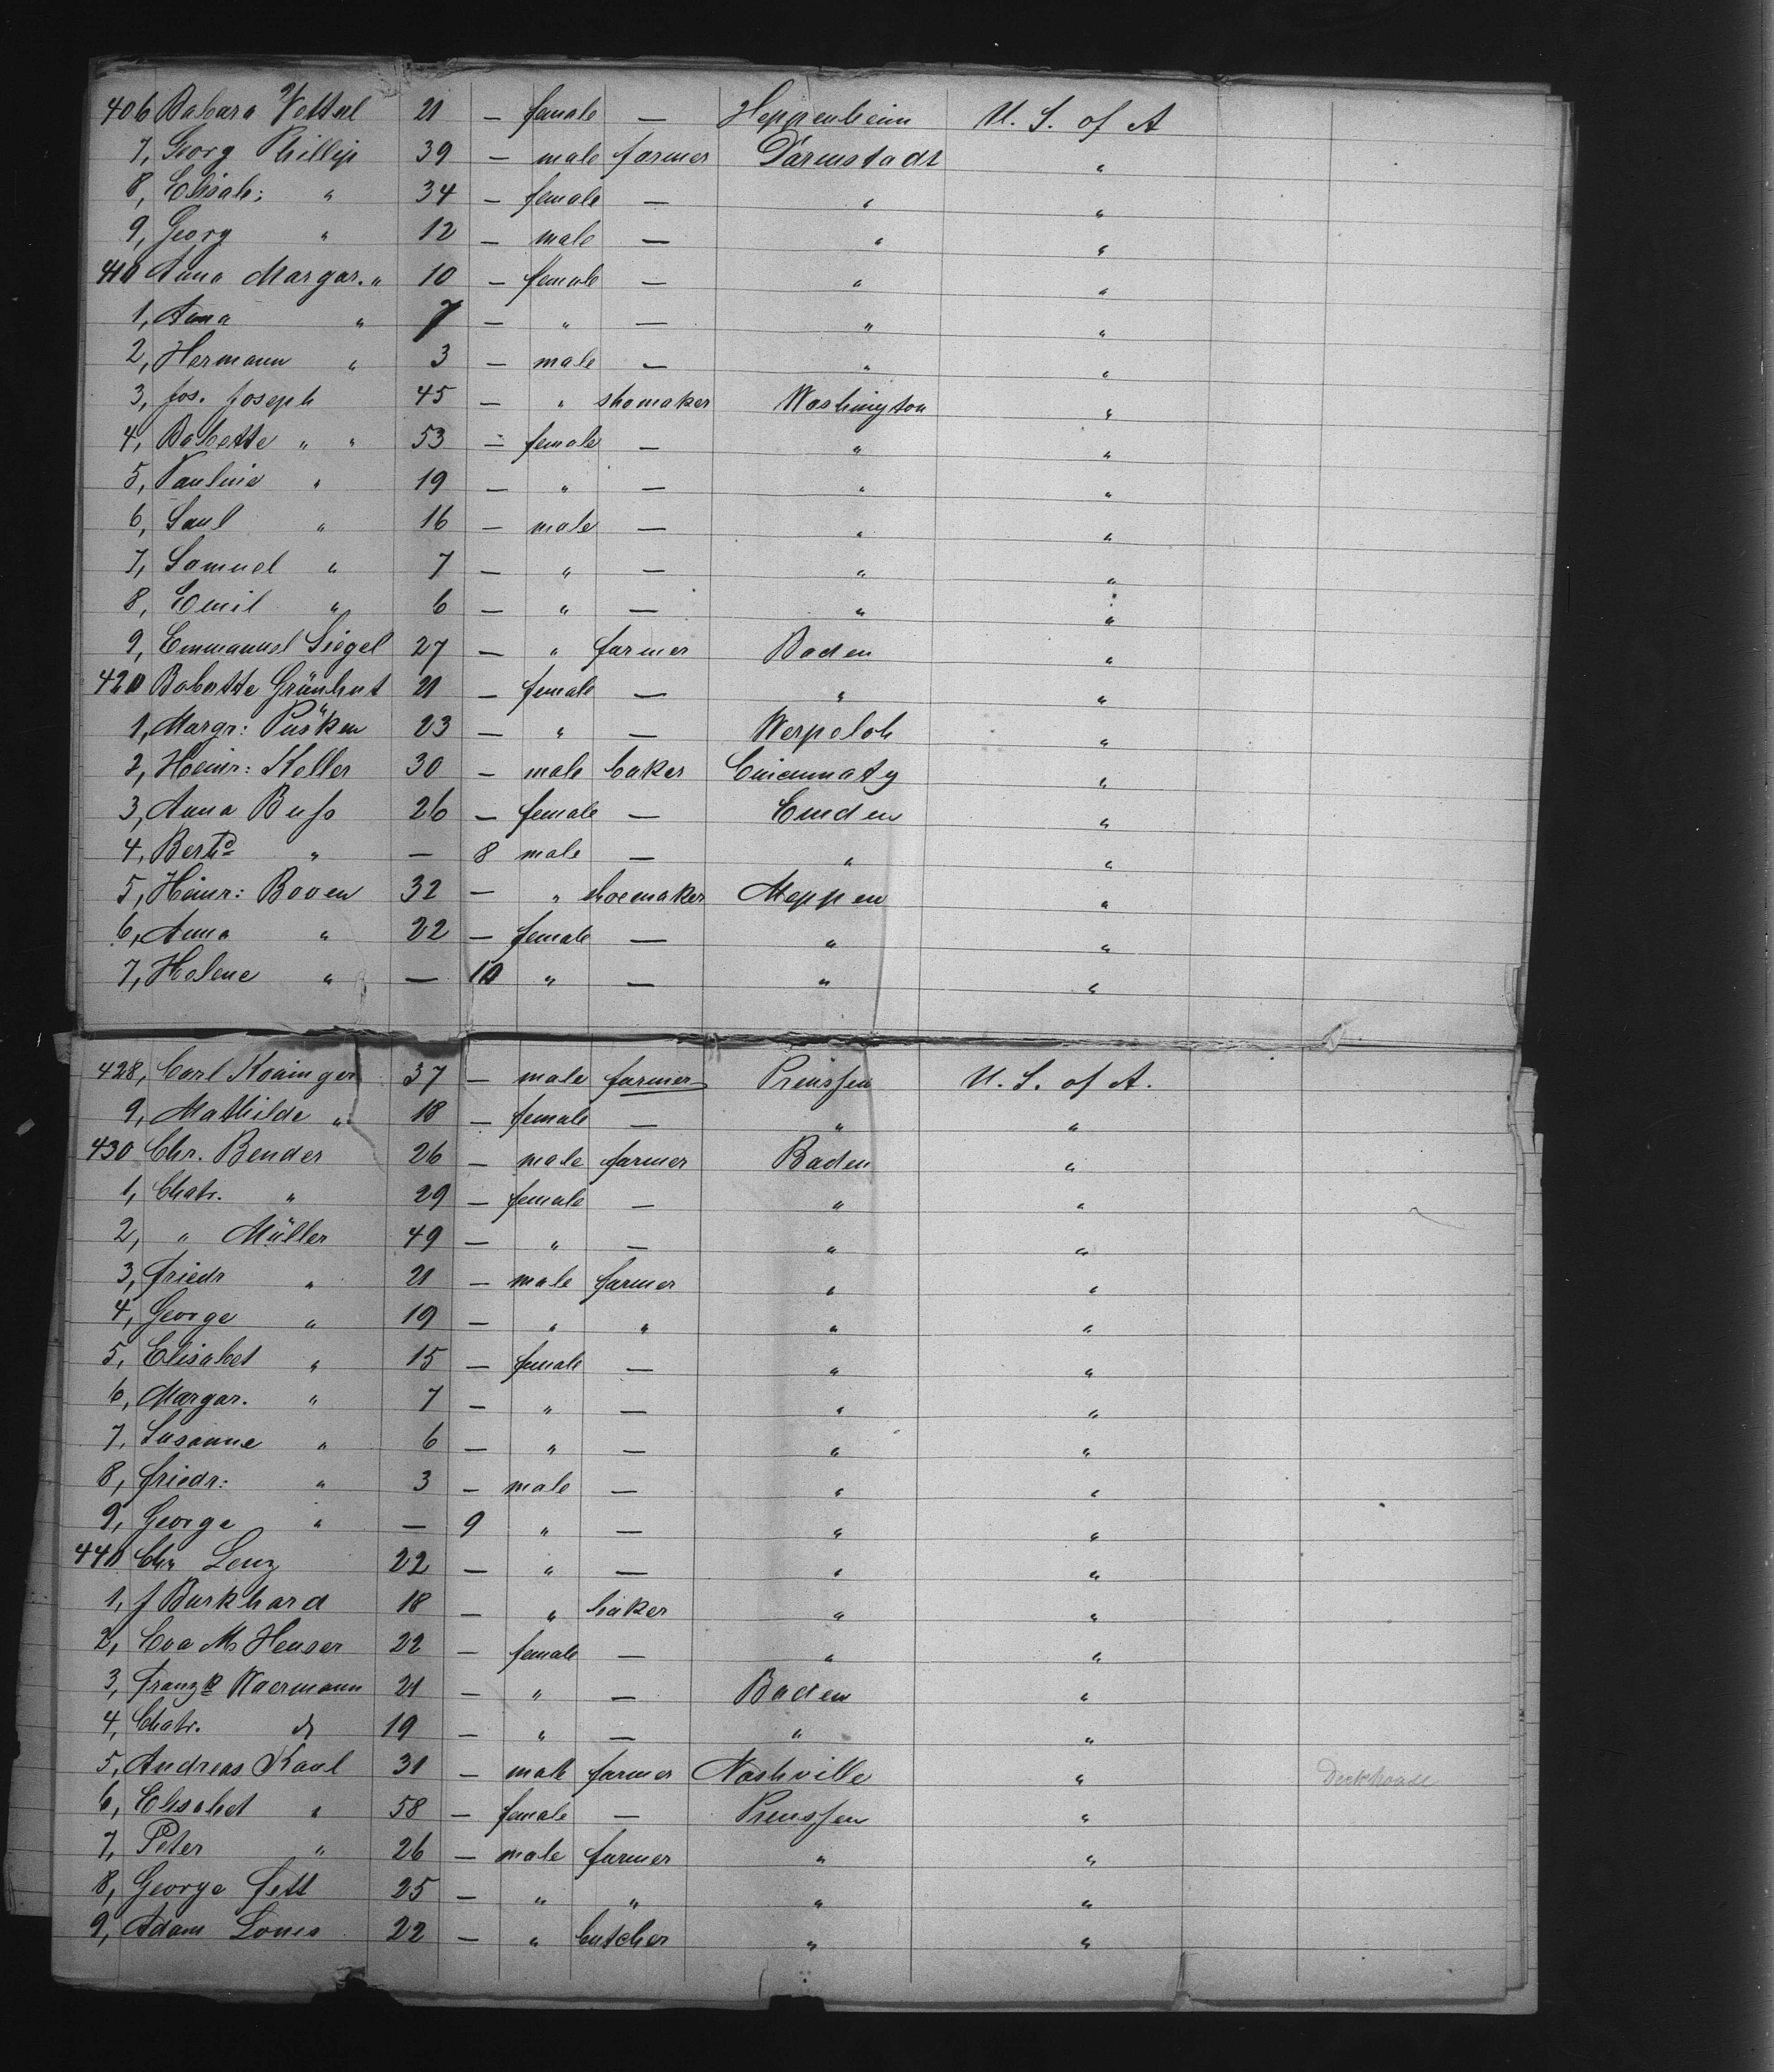 406 Babara Vettel 21 — female — Heppenheim U. S. of A
7, Georg Phillip 39 — male farmer Darmstadt "
8, Elisab: " 34 — female — " "
9, Georg " 12 — male — " "
410 Anna Margar. " 10 — female — " "
1, Anna " 7 — " — " "
2, Hermann " 3 — male — " "
3, Jos. Joseph 45 — " shomaker Washington "
4, Babette " " 53 — female — " "
5, Pauline " 19 — " — " "
6, Saul " 16 — male — " "
7, Samuel " 7 — " — " "
8, Emil " 6 — " — " "
9, Emmanuel Siegel 27 — " farmer Baden "
420 Babette Grünhut 21 — female — " "
1, Margr: Püsken 23 — " — Werpeloh "
2, Heinr: Keller 30 — male baker Cincinnaty "
3, Anna Buss 26 — female — Emden "
4, Berhd " — 8 male — " "
5, Heinr: Booen 32 — " shoemaker Meppen "
6, Anna " 22 — female — " "
7, Helene " — 10 " — " "
428, Carl Koninger 37 — male farmer Preussen U. S. of A.
9, Mathilde " 18 — female — " "
430 Chr. Bender 26 — male farmer Baden "
1, Chatr. " 29 — female — " "
2, " Müller 49 — " — " "
3, Friedr " 21 — male farmer " "
4, George " 19 — " " " "
5, Elisabet " 15 — female — " "
6, Margar. " 7 — " — " "
7, Susanne " 6 — " — " "
8, Friedr: " 3 — male — " "
9, George " — 9 " — " "
440 Chr Lenz 22 — " — " "
1, J Burkhard 18 — " baker " "
2, Eva M Heuser 22 — female — " "
3, Franzk Waermann 21 — " — Baden "
4, Chatr. do 19 — " — " "
5, Andreas Kaul 31 — male farmer Nashville " Deckhouse
6, Elisabet " 58 — female — Preussen "
7, Peter " 26 — male farmer " "
8, George Fett 25 — " " " "
9, Adam Louis 22 — " butcher " "